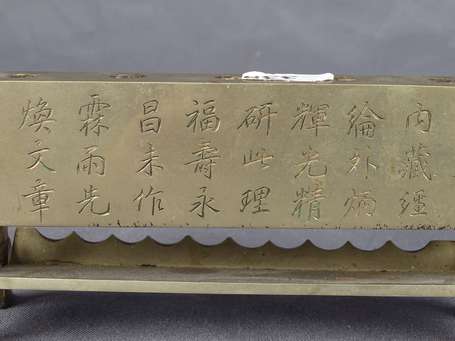 内藏經
綸外炳
輝光精
研此理
福壽永
昌未作
霖雨先
煥文章